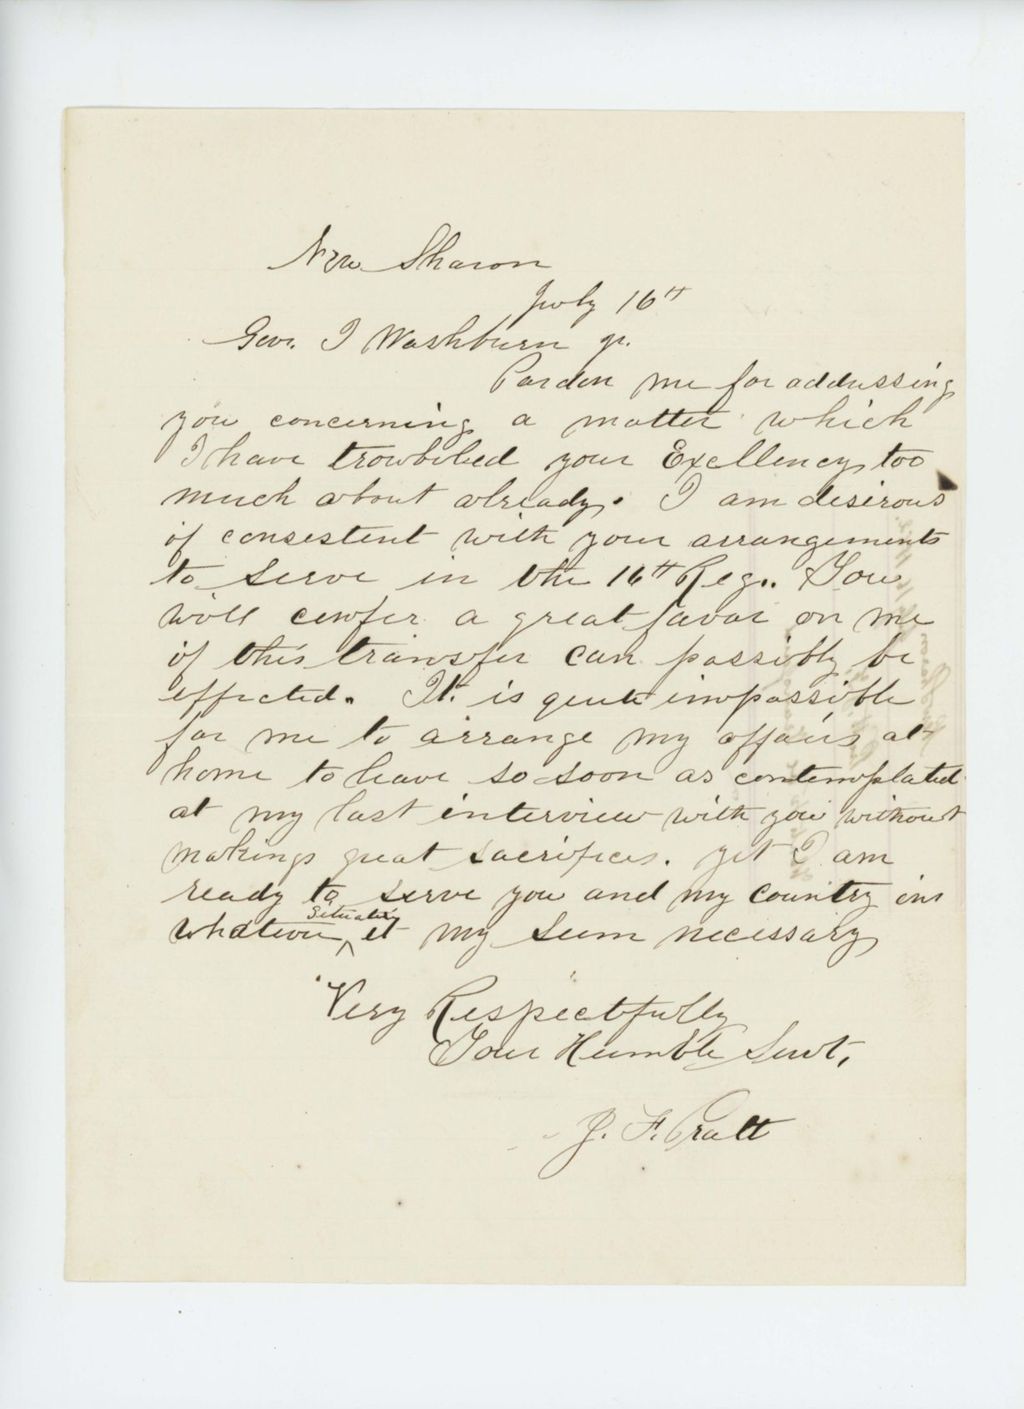 New Sharon
July 16th
Gov. I Washburn jr.
Pardon me for addressing
you concerning a matter which
I have troubled your Excellency too
much about already. I am desirous
if consistent with your arrangements
to serve in the 16th Reg.. You
will confer a great favor on me
if this transfer can possibly be
effected. It is quite impossible
for me to arrange my affairs at
home to leave so soon as contemplated
at my last interview with you without
making great sacrifices. yet I am
ready to serve you and my country in
whatever situation it my seem necessary
Very Respectfully
Your Humble Servt,
J. F. Pratt